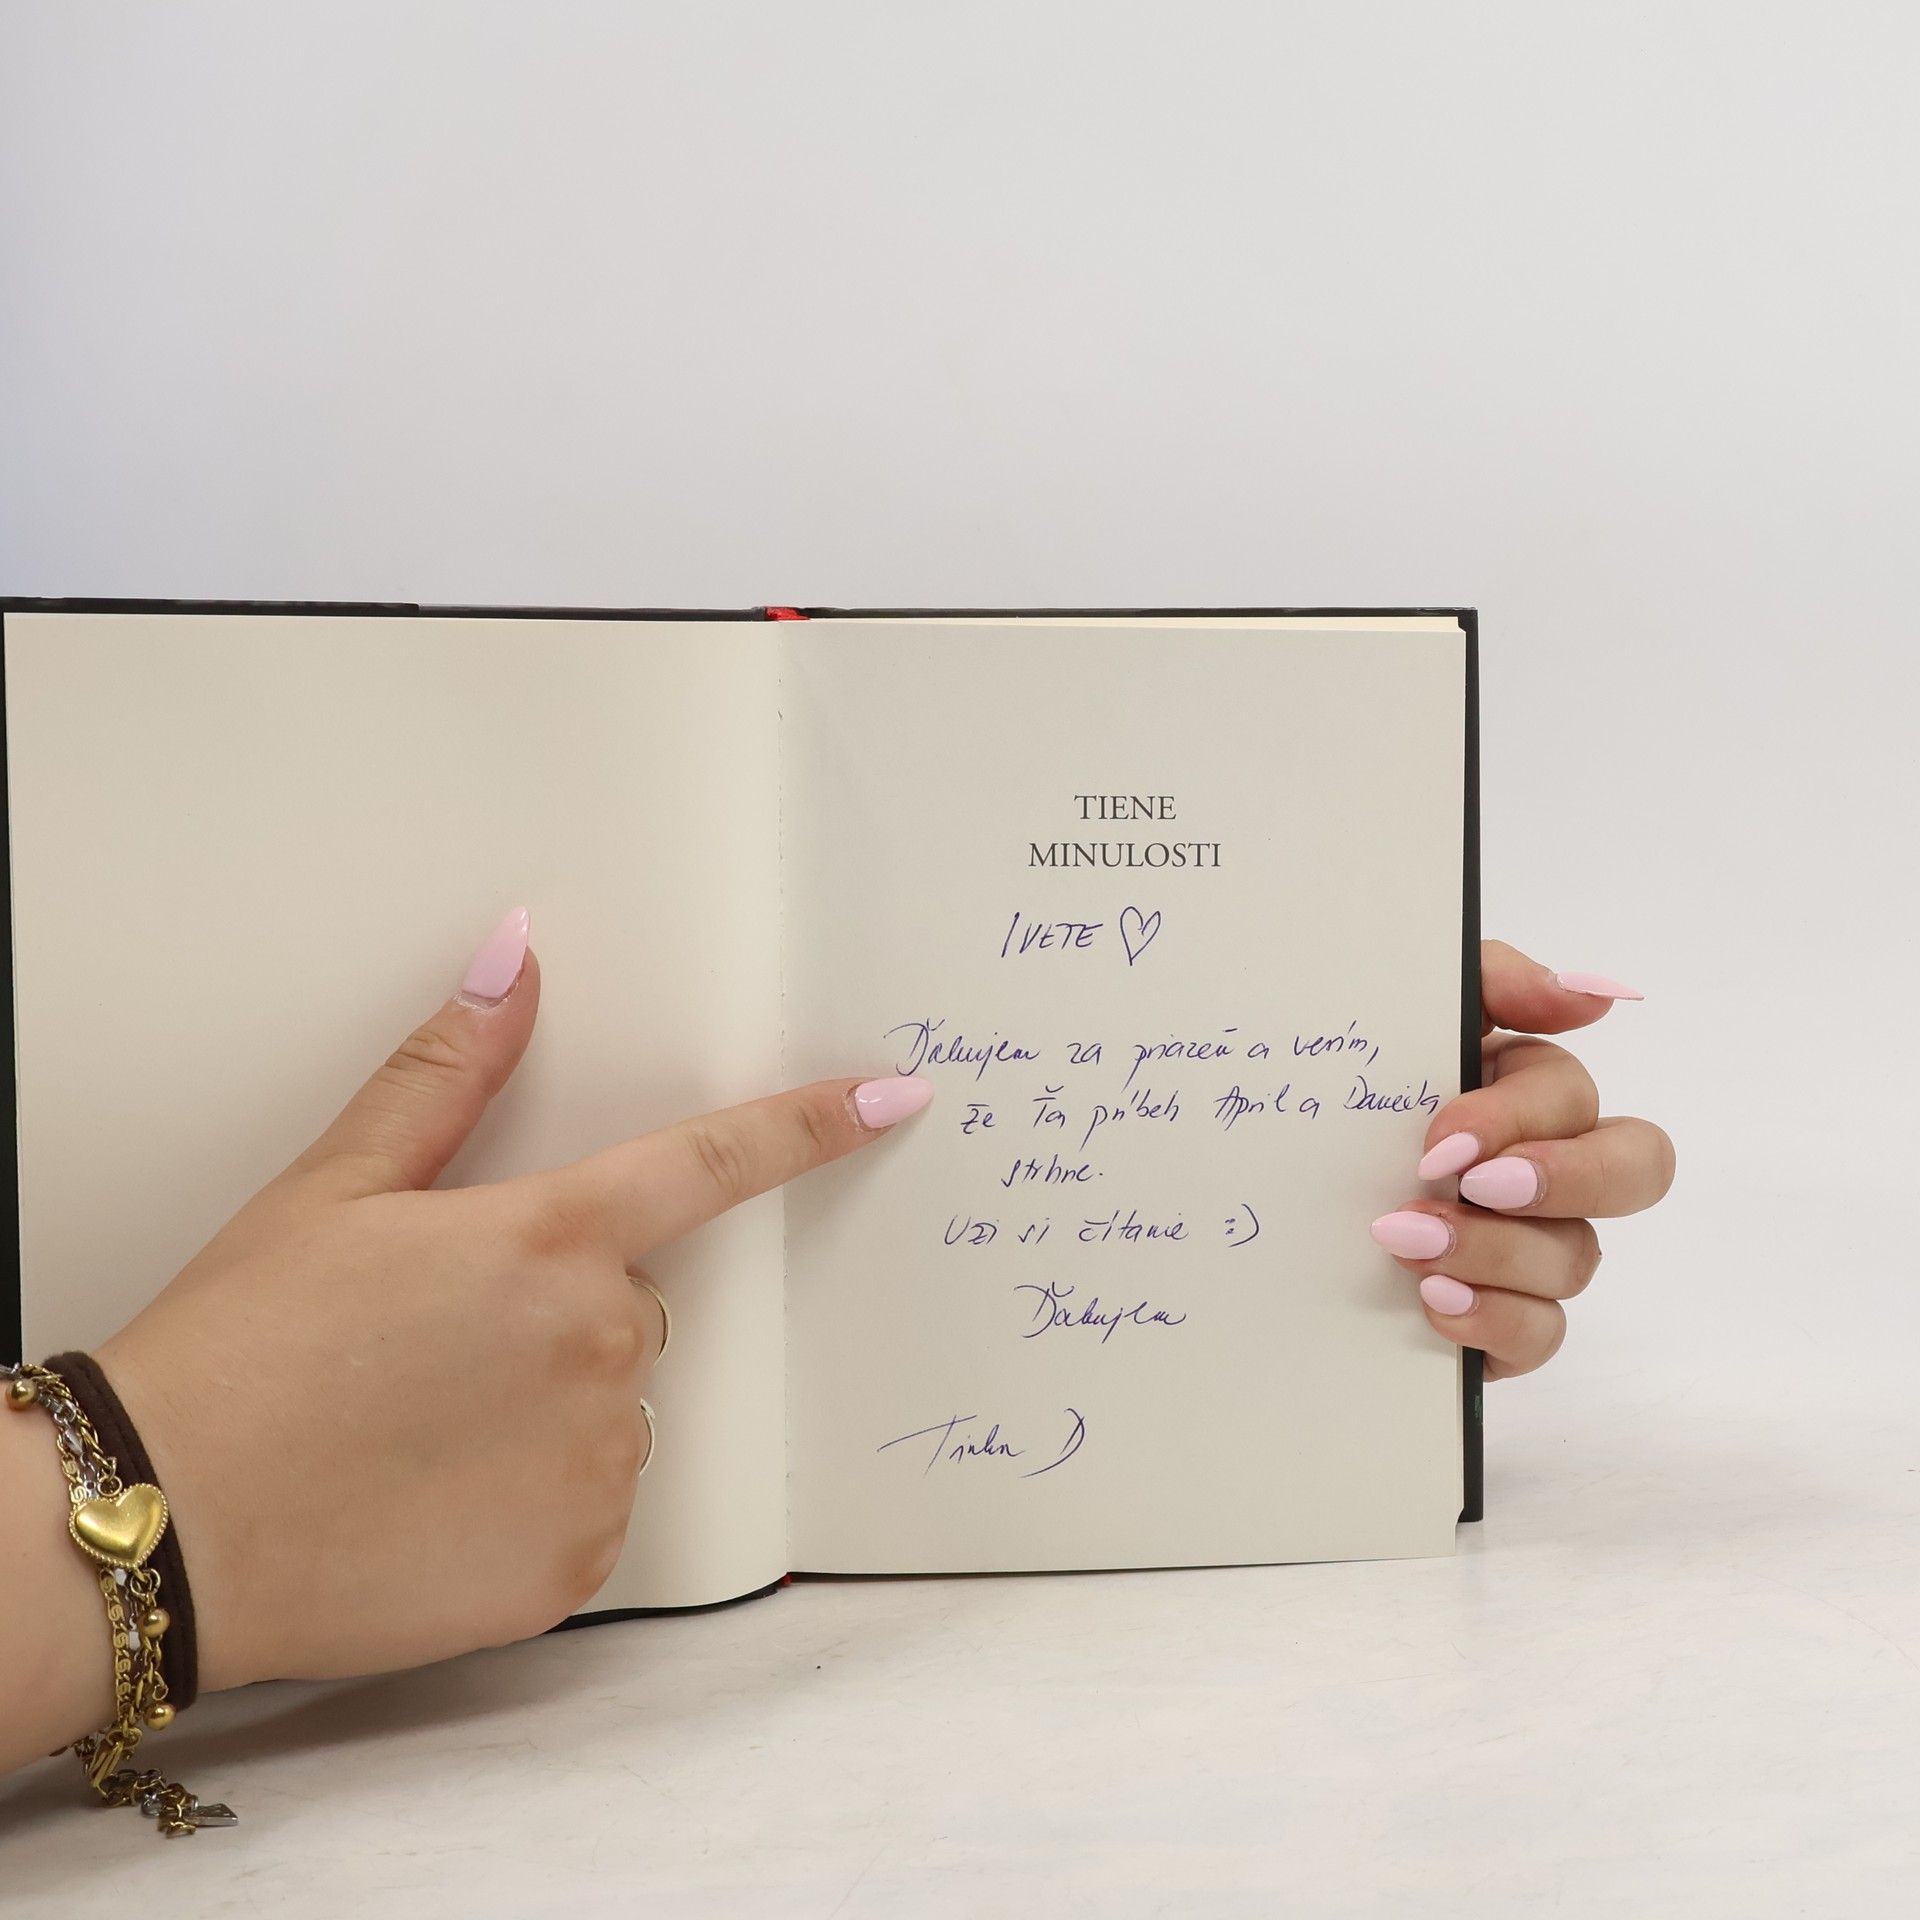 TIENE
MINULOSTI
IVETE
Ďakujem za priazeň a verím,
že Ťa príbeh April a Davida
strhne.
Uži si čítanie :)
Ďakujem
Tinka D